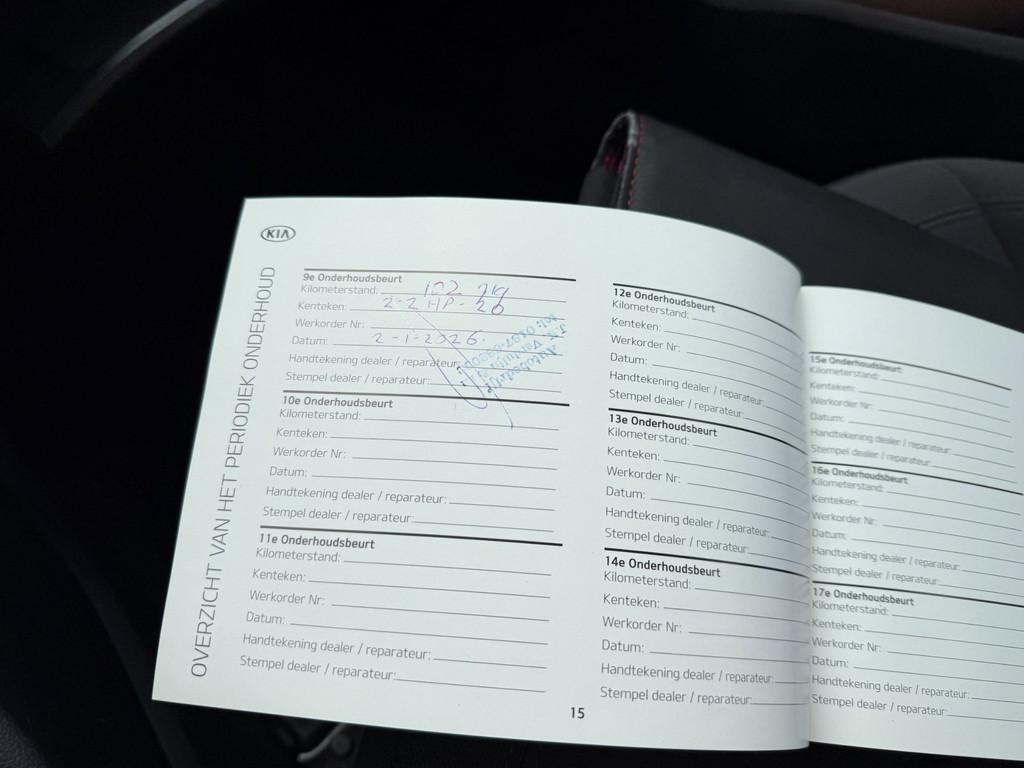 KIA
OVERZICHT VAN HET PERIODIEK ONDERHOUD
9e Onderhoudsbeurt
Kilometerstand:
Kenteken:
Werkorder Nr:
Datum: 2-1-2026.
Handtekening dealer / reparateur:
Stempel dealer / reparateur:
10e Onderhoudsbeurt
Kilometerstand:
Kenteken:
Werkorder Nr:
Datum:
Handtekening dealer / reparateur:
Stempel dealer / reparateur:
11e Onderhoudsbeurt
Kilometerstand:
Kenteken:
Werkorder Nr:
Datum:
Handtekening dealer / reparateur:
Stempel dealer / reparateur:
15
12e Onderhoudsbeurt
Kilometerstand:
Kenteken:
Werkorder Nr:
Datum:
Handtekening dealer / reparateur:
Stempel dealer / reparateur:
13e Onderhoudsbeurt
Kilometerstand:
Kenteken:
Werkorder Nr:
Datum:
Handtekening dealer / reparateur:
Stempel dealer / reparateur:
14e Onderhoudsbeurt
Kilometerstand:
Kenteken:
Werkorder Nr:
Datum:
Handtekening dealer / reparateur:
Stempel dealer / reparateur:
15e Onderhoudsbeurt
Kilometerstand:
Kenteken:
Werkorder Nr:
Datum:
Handtekening dealer / reparateur:
Stempel dealer / reparateur:
16e Onderhoudsbeurt
Kilometerstand:
Kenteken:
Werkorder Nr:
Datum:
Handtekening dealer / reparateur:
Stempel dealer / reparateur:
17e Onderhoudsbeurt
Kilometerstand:
Kenteken:
Werkorder Nr:
Datum:
Handtekening dealer / reparateur:
Stempel dealer / reparateur: